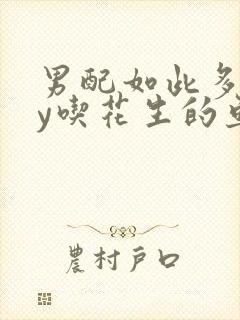 男配如此多
y喫花生的
農村戶口